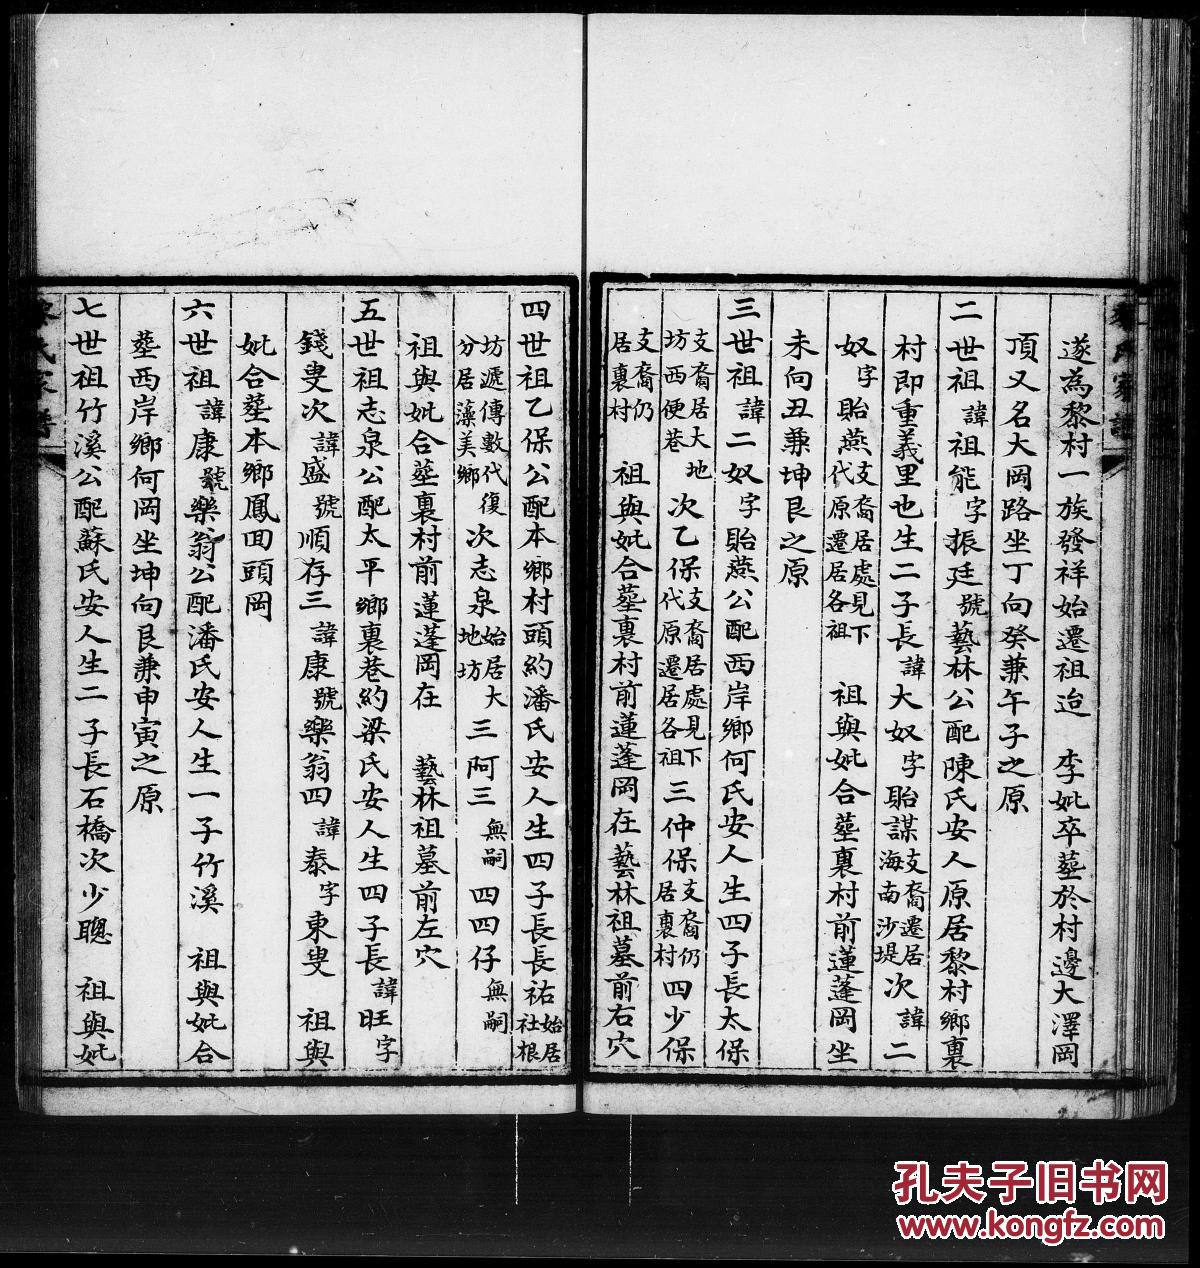 遂為黎村一族發祥始遷祖迨　李妣卒塟於村邊大澤岡
頂又名大岡路坐丁向癸兼午子之原
二世祖諱祖能字振廷號藝林公配陳氏安人原居黎村鄉裏
村即重義里也生二子長諱大奴字貽謀支裔遷居海南沙堤次諱二
奴字貽燕支裔居處見下代原遷居各祖　祖與妣合塟裏村前蓮蓬岡坐
未向丑兼坤艮之原
三世祖諱二奴字貽燕公配西岸鄉何氏安人生四子長太保
支裔居大地坊西便巷次乙保支裔居處見下代原遷居各祖三仲保支裔仍居裏村四少保
支裔仍居裏村　祖與妣合墓裏村前蓮蓬岡在藝林祖墓前右穴
四世祖乙保公配本鄉村頭約潘氏安人生四子長長祐始居社根
坊遞傳數代復分居藻美鄉次志泉始居大地坊三阿三無嗣四四仔無嗣
祖與妣合塟裏村前蓮蓬岡在　藝林祖墓前左穴
五世祖志泉公配太平鄉裏巷約梁氏安人生四子長諱旺字
錢叟次諱盛號順存三諱康號樂翁四諱泰字東叟　祖與
妣合塟本鄉鳳回頭岡
六世祖諱康號樂翁公配潘氏安人生一子竹溪　祖與妣合
塟西岸鄉何岡坐坤向艮兼申寅之原
七世祖竹溪公配蘇氏安人生二子長石橋次少聰　祖與妣
孔夫子旧书网
www.kongfz.com